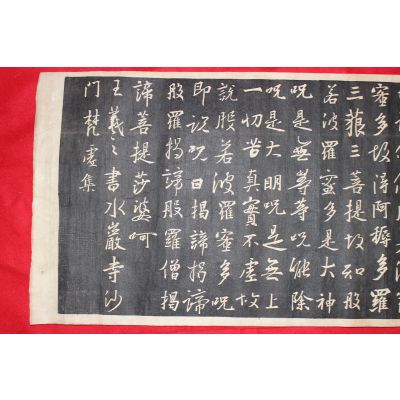 蜜多故得阿耨多羅
三藐三菩提故知般
若波羅蜜多是大神
呪是無等等呪能除
呪是大明呪是無上
一切苦真實不虛故
說般若波羅蜜多呪
即說呪曰揭諦揭諦
般羅揭諦般羅僧揭
諦菩提莎婆呵
王羲之書水巖寺沙
门梵虛集